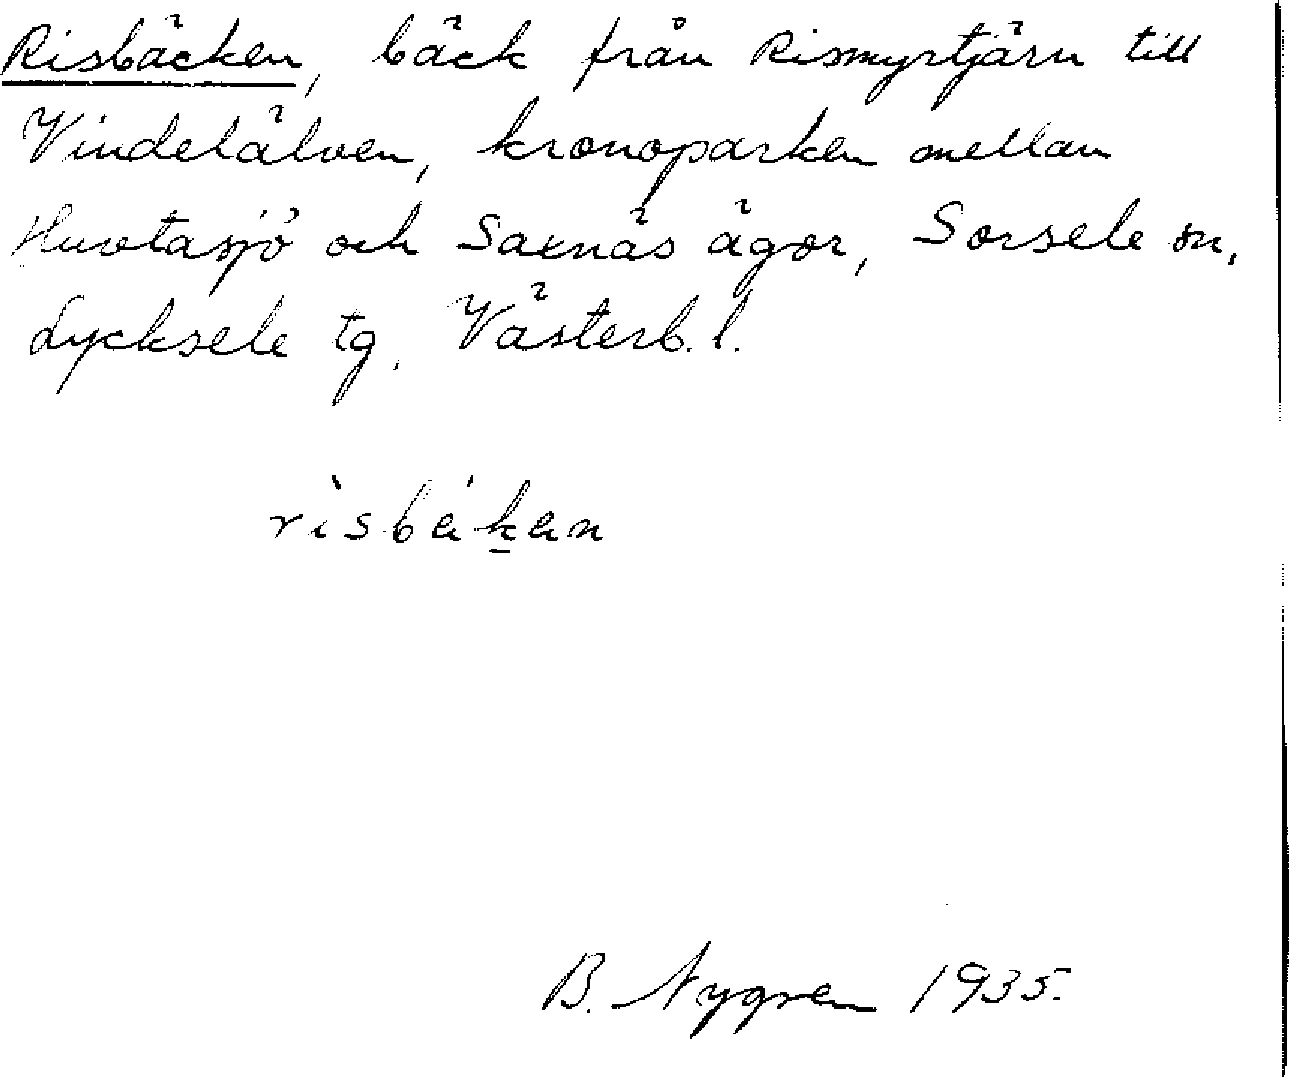 Risbäcken, bäck från Rismyrtjärn till
Vindelälven, kronoparken mellan
Huvtasjö och Saxnäs ägor, Sorsele sn,
Lycksele tg. Västerb. l.
rìsbékan
B. Nygren 1935.